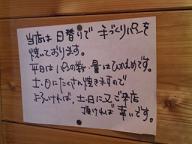 当店は日替りで手づくりパンを
焼いております。
平日はパンの数・量はひかえめです。
土・日にたくさん焼きますので
よろしければ、土日に又ご来店
頂ければ幸いです。